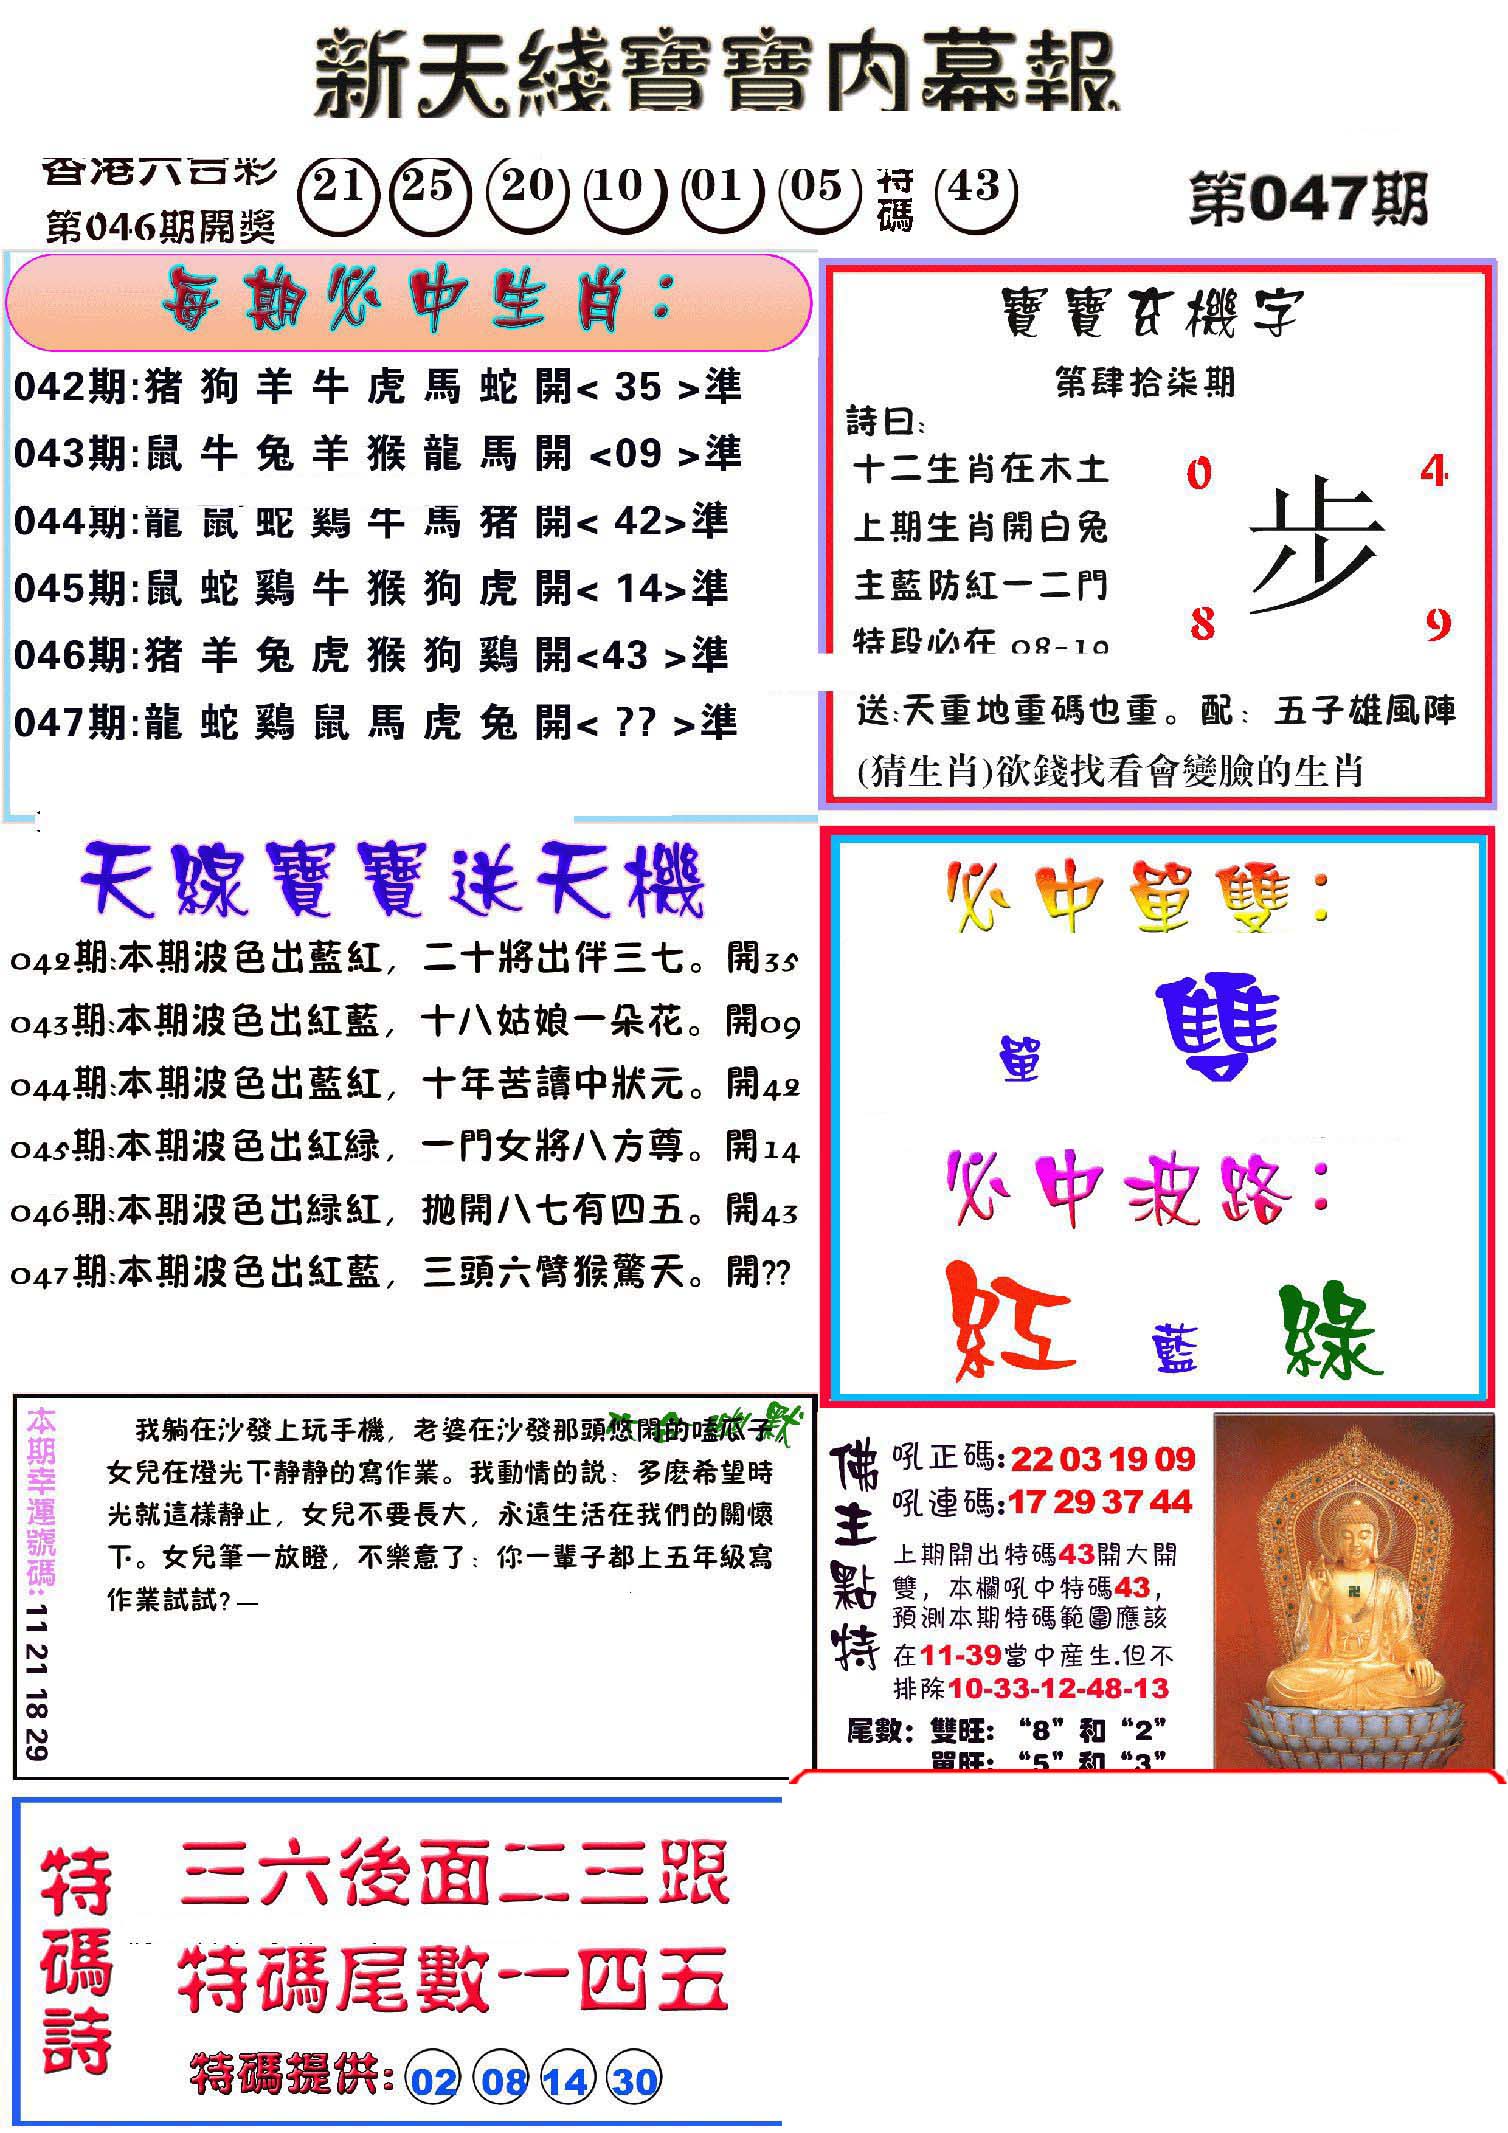 新天綫寶寶内幕報
香港六合彩
第046期開獎
21 25 20 10 01 05 特碼 43
第047期
每期必中生肖：
042期:猪 狗 羊 牛 虎 馬 蛇 開< 35 >準
043期:鼠 牛 兔 羊 猴 龍 馬 開 <09 >準
044期:龍 鼠 蛇 鷄 牛 馬 猪 開< 42>準
045期:鼠 蛇 鷄 牛 猴 狗 虎 開< 14>準
046期:猪 羊 兔 虎 猴 狗 鷄 開<43 >準
047期:龍 蛇 鷄 鼠 馬 虎 兔 開< ?? >準
寶寶玄機字
第肆拾柒期
詩曰:
十二生肖在木土
上期生肖開白兔
主藍防紅一二門
特段必在 08-19
0 4
步
8 9
送:天重地重碼也重。配：五子雄風陣
(猜生肖)欲錢找看會變臉的生肖
天線寶寶送天機
042期:本期波色出藍紅，二十將出伴三七。開35
043期:本期波色出紅藍，十八姑娘一朵花。開09
044期:本期波色出藍紅，十年苦讀中狀元。開42
045期:本期波色出紅緑，一門女將八方尊。開14
046期:本期波色出緑紅，抛開八七有四五。開43
047期:本期波色出紅藍，三頭六臂猴驚天。開??
必中單雙：
單 雙
必中波路：
紅 藍 綠
本期幸運號碼:11 21 18 29
我躺在沙發上玩手機，老婆在沙發那頭悠閑的嗑瓜子，
女兒在燈光下静静的寫作業。我動情的説：多麽希望時
光就這樣静止，女兒不要長大，永遠生活在我們的關懷
下。女兒筆一放瞪，不樂意了：你一輩子都上五年級寫
作業試試?—
佛主點特
吼正碼:22 03 19 09
吼連碼:17 29 37 44
上期開出特碼43開大開
雙，本欄吼中特碼43，
預測本期特碼範圍應該
在11-39當中産生.但不
排除10-33-12-48-13
尾數：雙旺：“8”和“2”
單旺：“5”和“3”
特碼詩
三六後面二三跟
特碼尾數一四五
特碼提供: 02 08 14 30